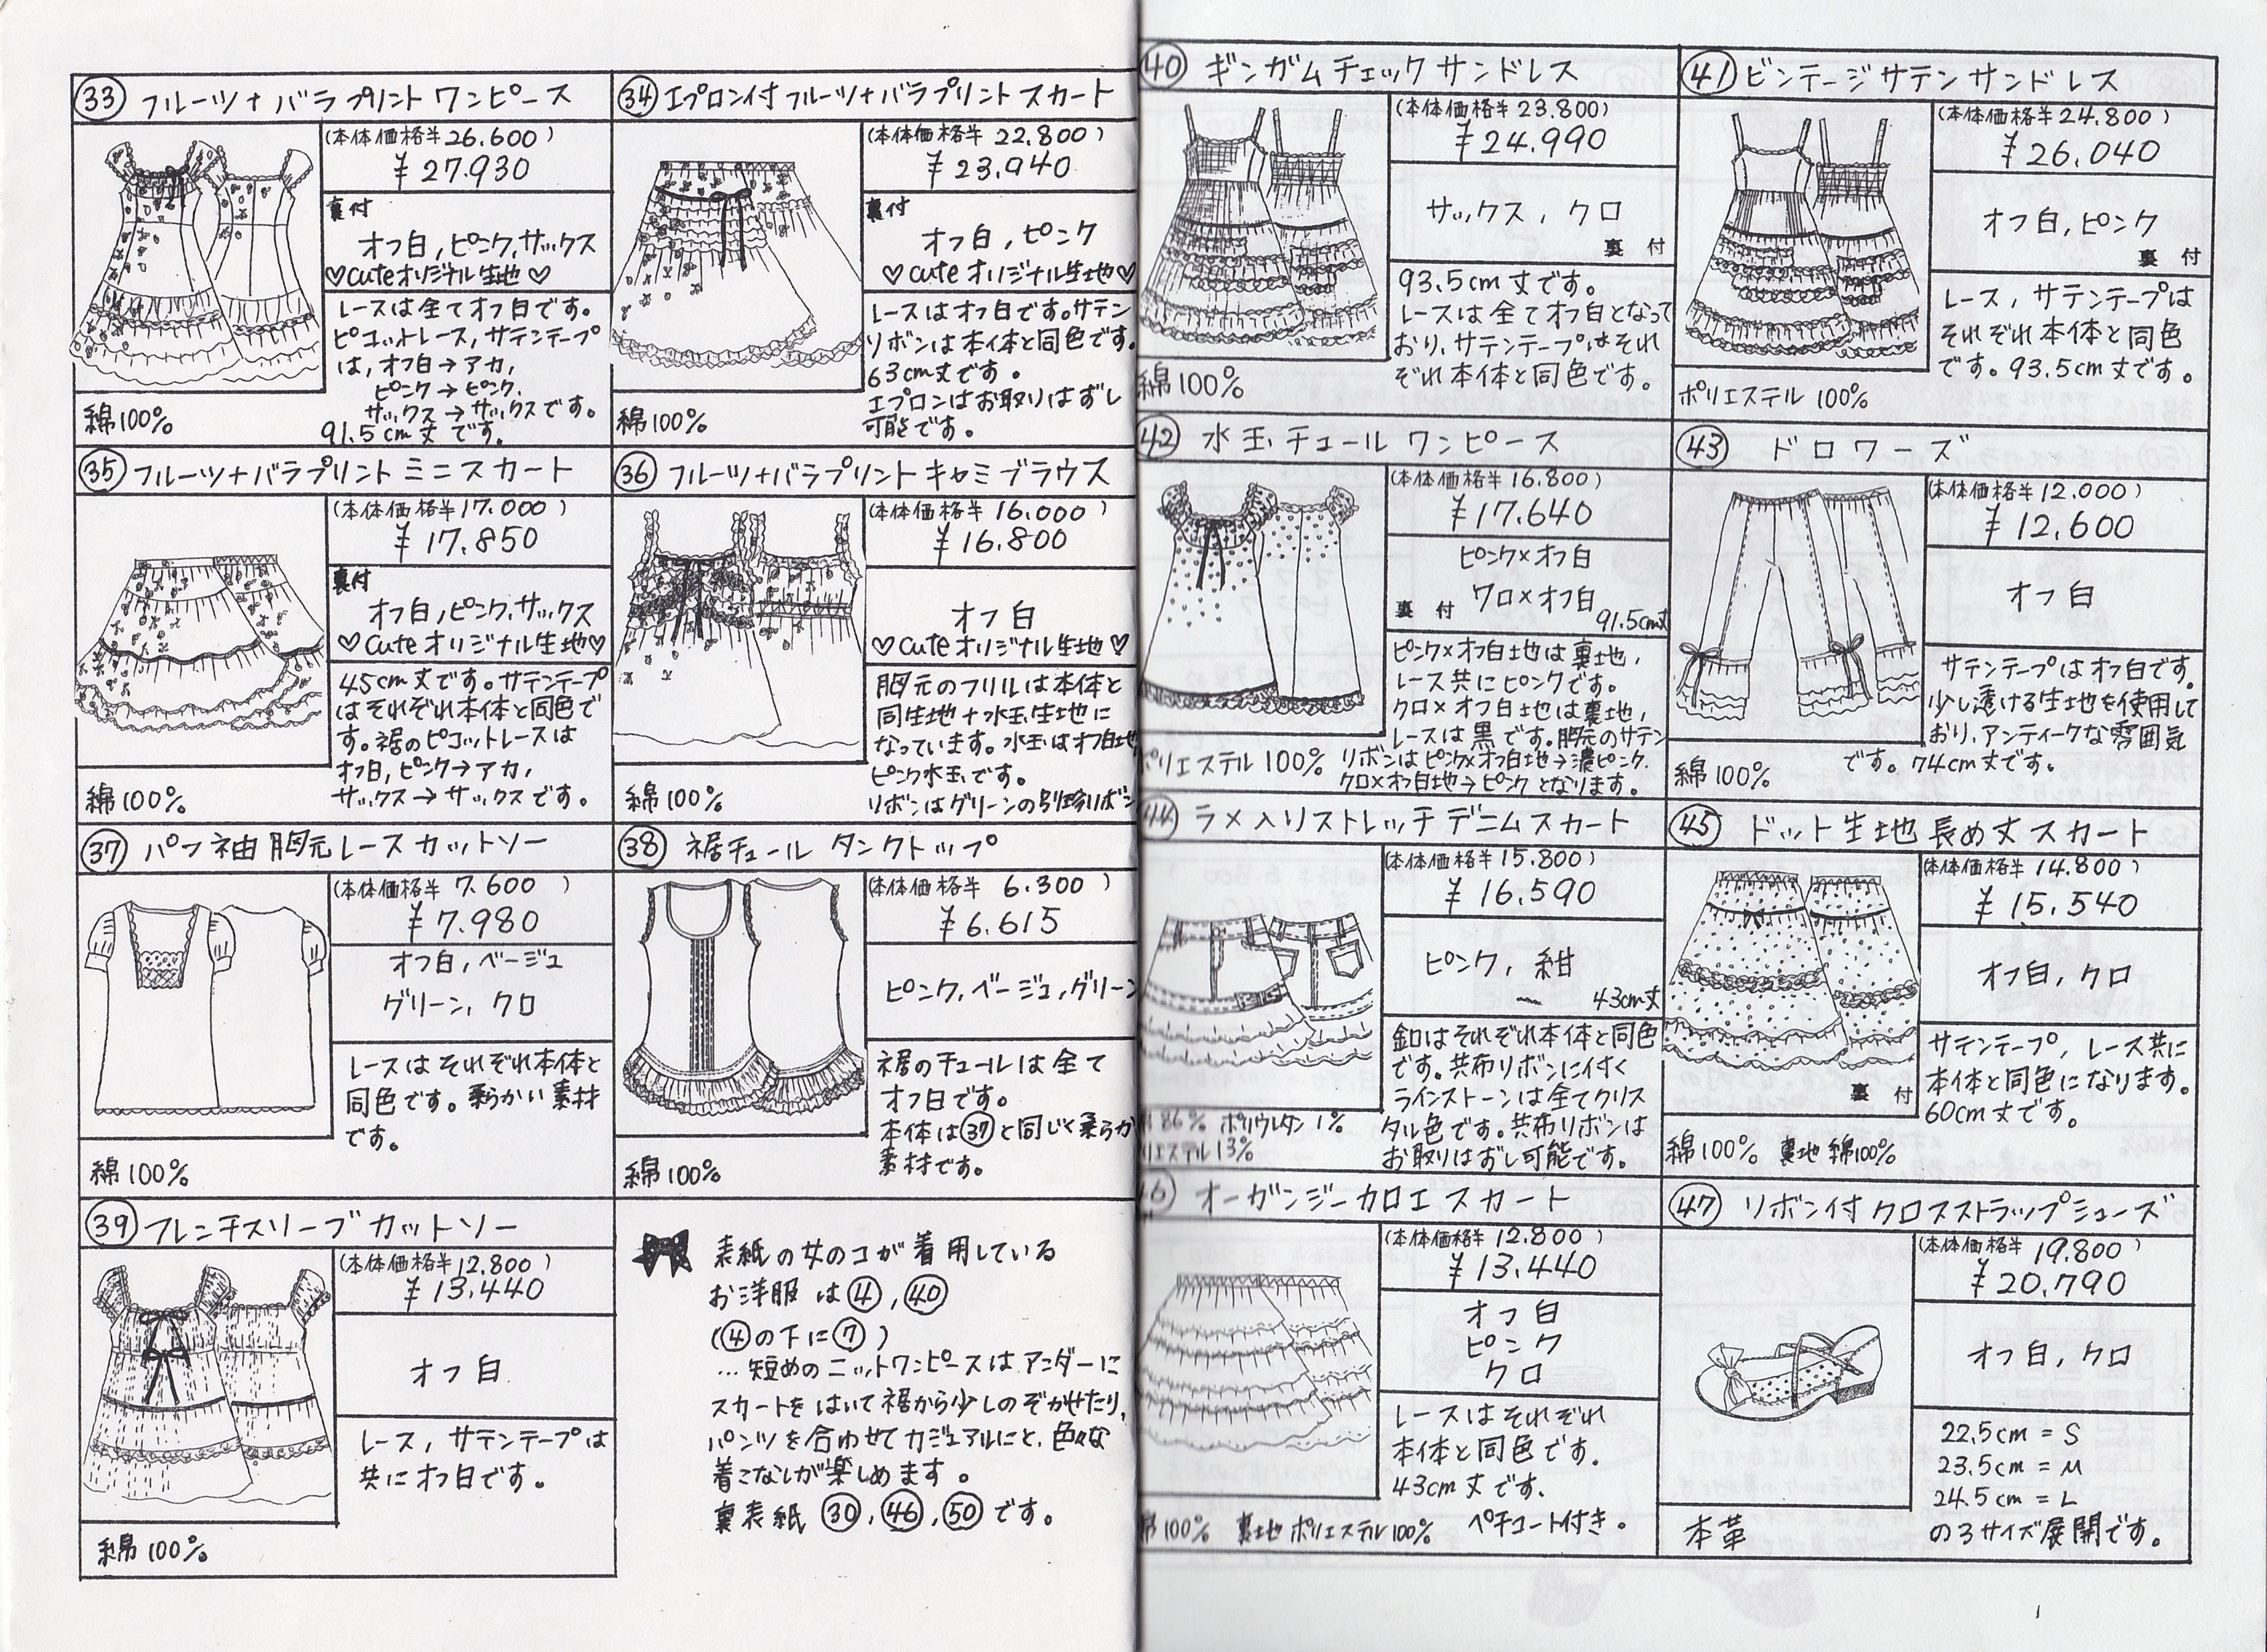 ㉝ フルーツ+バラプリントワンピース
(本体価格¥26.600)
¥27.930
裏付
オフ白,ピンク,サックス
♡Cuteオリジナル生地♡
レースは全てオフ白です。
ピコットレース,サテンテープ
は,オフ白→アカ,
ピンク→ピンク,
サックス→サックスです。
91.5cm丈です。
綿100%
㉞ エプロン付フルーツ+バラプリントスカート
(本体価格¥22.800)
¥23.940
裏付
オフ白,ピンク
♡Cuteオリジナル生地♡
レースはオフ白です。サテン
リボンは本体と同色です。
63cm丈です。
エプロンはお取りはずし
可能です。
綿100%
㉟ フルーツ+バラプリントミニスカート
(本体価格¥17.000)
¥17.850
裏付
オフ白,ピンク,サックス
♡Cuteオリジナル生地♡
45cm丈です。サテンテープ
はそれぞれ本体と同色で
す。裾のピコットレースは
オフ白,ピンク→アカ,
サックス→サックスです。
綿100%
㊱ フルーツ+バラプリントキャミブラウス
(本体価格¥16.000)
¥16.800
オフ白
♡Cuteオリジナル生地♡
胸元のフリルは本体と
同生地+水玉生地に
なっています。水玉はオフ白地
ピンク水玉です。
リボンはグリーンの別珍リボン
綿100%
㊲ パフ袖胸元レースカットソー
(本体価格¥7.600)
¥7.980
オフ白,ベージュ
グリーン,クロ
レースはそれぞれ本体と
同色です。柔らかい素材
です。
綿100%
㊳ 裾チュールタンクトップ
(本体価格¥6.300)
¥6.615
ピンク,ベージュ,グリーン
裾のチュールは全て
オフ白です。
本体は㊲と同じく柔らか
素材です。
綿100%
㊴ フレンチスリーブカットソー
(本体価格¥12.800)
¥13.440
オフ白
レース,サテンテープは
共にオフ白です。
綿100%
表紙の女のコが着用している
お洋服は④,㊵
(④の下に⑦)
…短めのニットワンピースはアンダーに
スカートをはいて裾から少しのぞかせたり,
パンツを合わせてカジュアルにと,色々な
着こなしが楽しめます。
裏表紙㉚,㊻,㊿です。
㊵ ギンガムチェックサンドレス
(本体価格¥23.800)
¥24.990
サックス,クロ
裏付
93.5cm丈です。
レースは全てオフ白となって
おり,サテンテープはそれ
ぞれ本体と同色です。
綿100%
㊶ ビンテージサテンサンドレス
(本体価格¥24.800)
¥26.040
オフ白,ピンク
裏付
レース,サテンテープは
それぞれ本体と同色
です。93.5cm丈です。
ポリエステル100%
㊷ 水玉チュールワンピース
(本体価格¥16.800)
¥17.640
ピンク×オフ白
クロ×オフ白
裏付
91.5cm丈
ピンク×オフ白地は裏地,
レース共にピンクです。
クロ×オフ白地は裏地,
レースは黒です。胸元のサテン
リボンはピンク×オフ白地→濃ピンク,
クロ×オフ白地→ピンクとなります。
ポリエステル100%
㊸ ドロワーズ
(本体価格¥12.000)
¥12.600
オフ白
サテンテープはオフ白です。
少し透ける生地を使用して
おり,アンティークな雰囲気
です。74cm丈です。
綿100%
㊹ ラメ入りストレッチデニムスカート
(本体価格¥15.800)
¥16.590
ピンク,紺
43cm丈
釦はそれぞれ本体と同色
です。共布リボンに付く
ラインストーンは全てクリス
タル色です。共布リボンは
お取りはずし可能です。
86% ポリウレタン1%
リエステル13%
㊺ ドット生地長め丈スカート
(本体価格¥14.800)
¥15.540
オフ白,クロ
サテンテープ,レース共に
本体と同色になります。
60cm丈です。
裏付
綿100% 裏地 綿100%
6 オーガンジーカロエスカート
(本体価格¥12.800)
¥13.440
オフ白
ピンク
クロ
レースはそれぞれ
本体と同色です。
43cm丈です.
ペチコート付き。
綿100% 裏地 ポリエステル100%
㊼ リボン付クロスストラップシューズ
(本体価格¥19.800)
¥20.790
オフ白,クロ
22.5cm=S
23.5cm=M
24.5cm=L
の3サイズ展開です。
本革